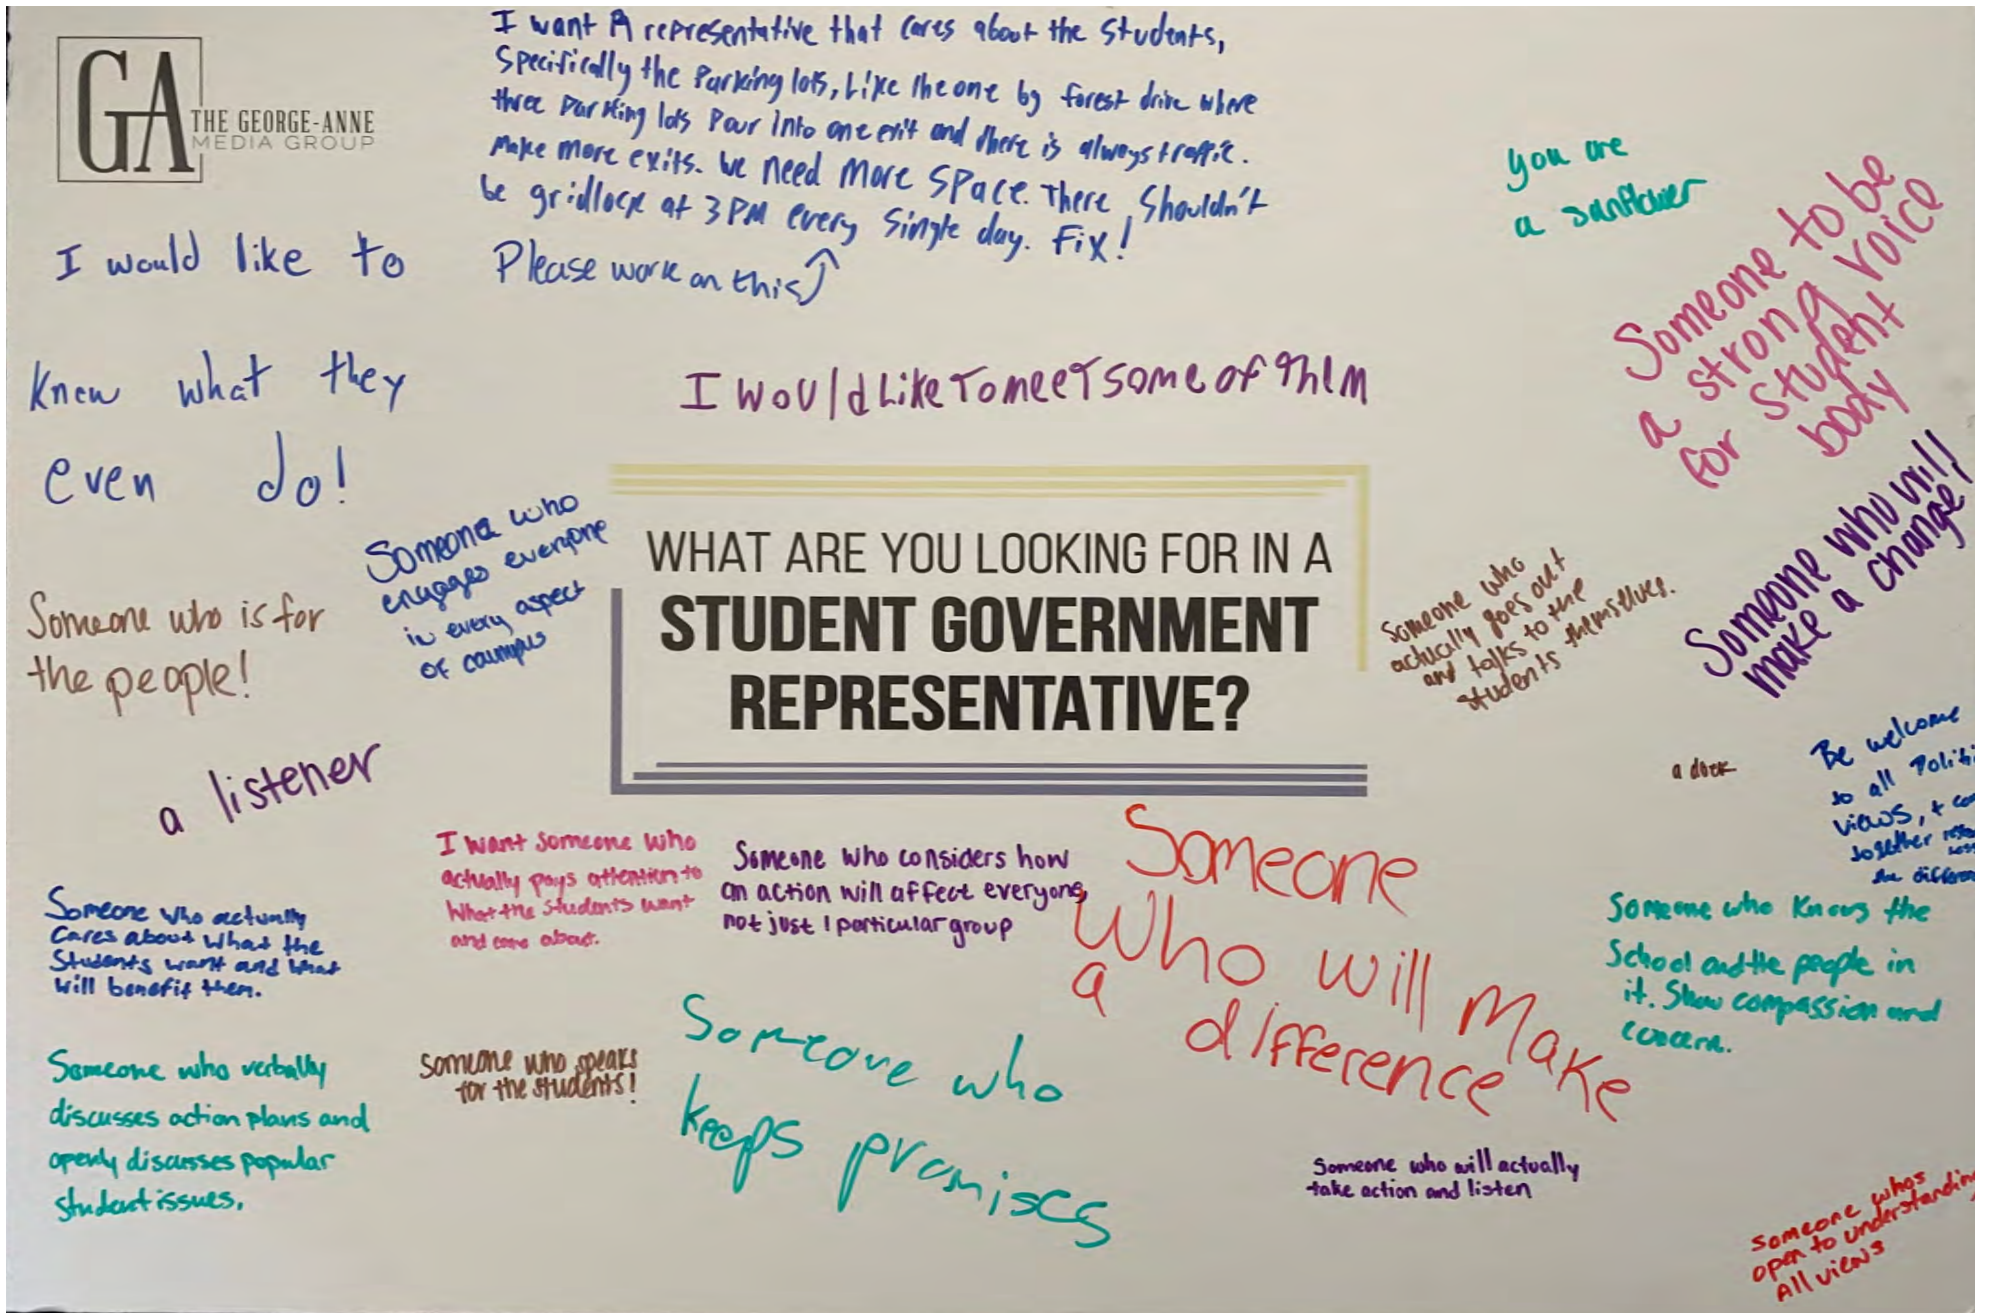 GA
THE GEORGE-ANNE
MEDIA GROUP
I want A representative that cares about the Students,
Specifically the Parking lots, Like the one by forest drive where
three parking lots Pour into one exit and there is always traffic.
Make more exits. We need More Space. There Shouldn't
be gridlock at 3 PM every Single day. Fix!
Please work on this
you are
a sunflower
Someone to be
a strong voice
for Student
body
I would like to
know what they
even do!
I would Like To meet some of them
Someone who will
make a change!
Someone who
engages everyone
in every aspect
of campus
WHAT ARE YOU LOOKING FOR IN A
STUDENT GOVERNMENT
REPRESENTATIVE?
Someone who
actually goes out
and talks to the
students themselves.
Someone who is for
the people!
a listener
a
Be welcome
to all Politi
views, +
together
the differen
I want someone who
actually pays attention to
What the students want
and care about.
Someone who considers how
an action will affect everyone,
not just 1 particular group
Someone
Who will Make
a difference
Someone who actually
Cares about what the
Students want and what
will benefit them.
Someone who knows the
School and the people in
it. Show compassion and
concern.
Someone who verbally
discusses action plans and
openly discusses popular
student issues.
Someone who speaks
for the students!
Someone who
keeps promises
Someone who will actually
take action and listen
someone whos
open to understanding
All views